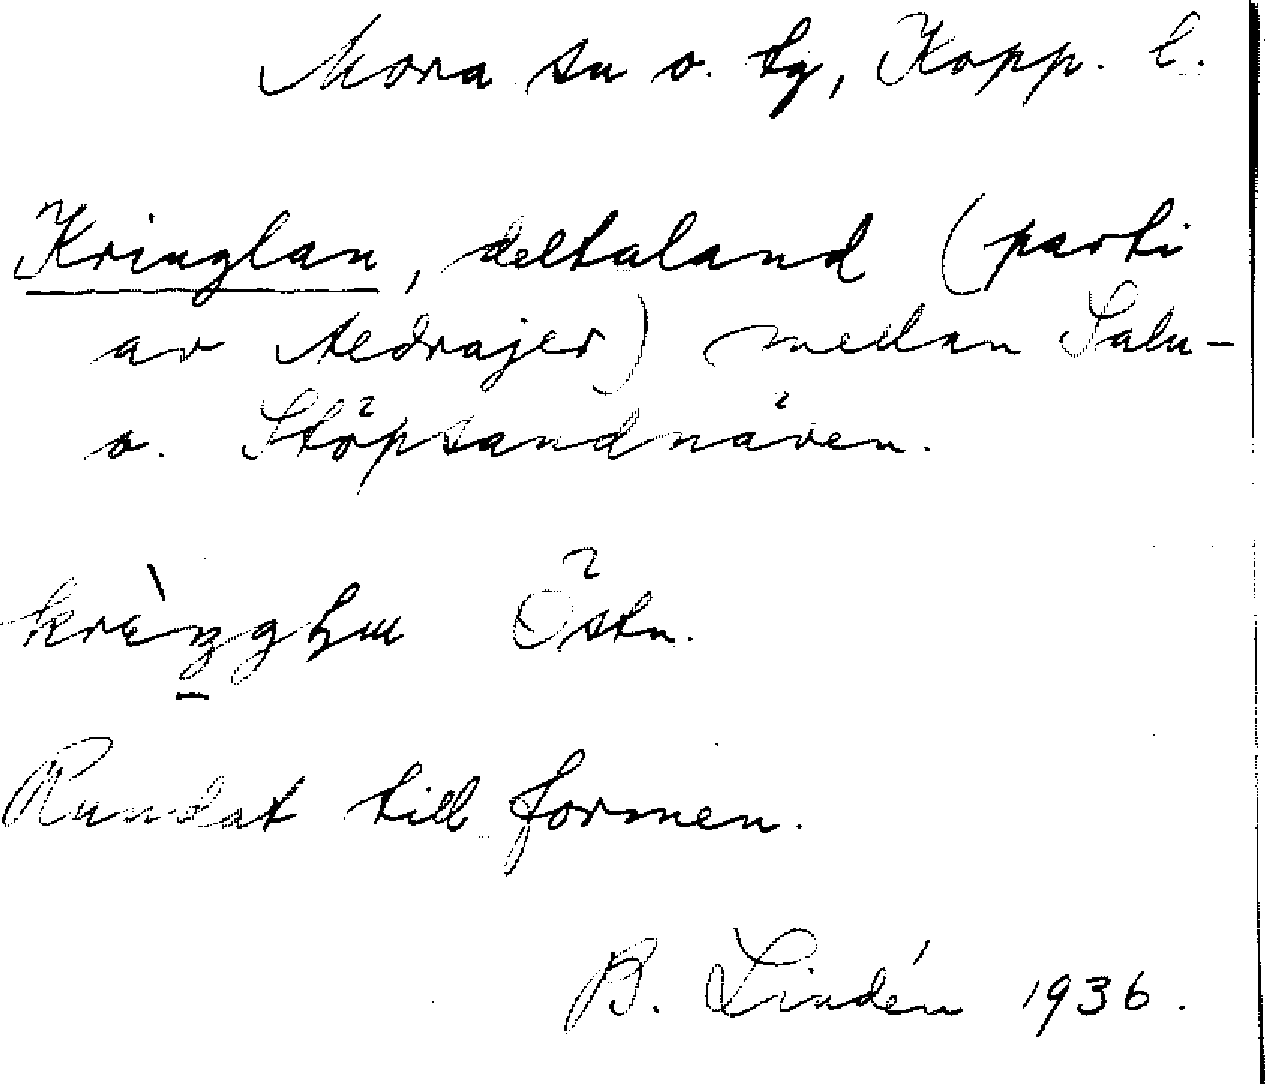 Mora sn o. tg, Kopp. l.
Kringlan, deltaland (parti
av Aedrajer) mellan Salu-
o. Stöpsandnäven.
Östn.
Rundat till formen.
B. Lindén 1936.